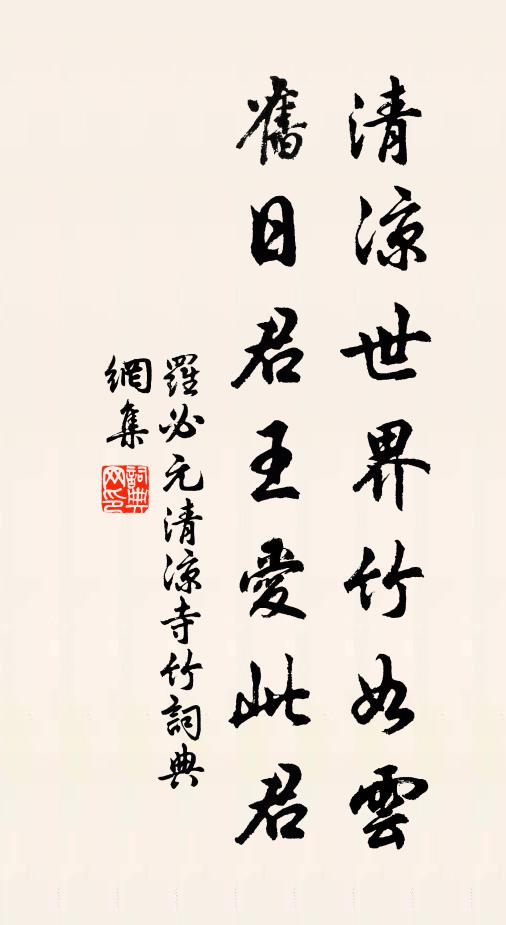 清涼世界竹如雲
舊日君王愛此君
羅必元清涼寺竹詞典
網集
詞典網印